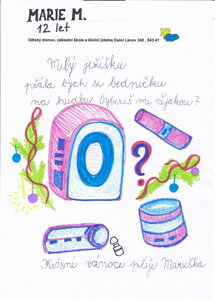 MARIE M.
12 let
Dětský domov, základní škola a školní jídelna Dolní Lánov 240, 543 41
Milý ježíšku
přála bych si bedničku
na hudbu. Vybereš mi nějakou?
?
Krásné vánoce přeje Maruška